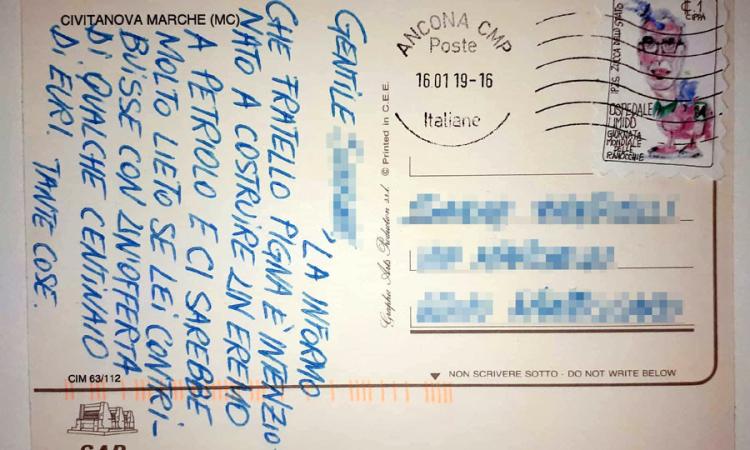 CIVITANOVA MARCHE (MC)
GENTILE
LA INFORMO
CHE FRATELLO PIGNA È INTENZIO
NATO A COSTRUIRE UN EREMO
A PETRIOLO E CI SAREBBE
MOLTO LIETO SE LEI CONTRI-
BUISSE CON UN'OFFERTA
DI QUALCHE CENTINAIO
DI EURI. TANTE COSE.
CIM 63/112
Graphic Arts Production s.r.l. © Printed in C.E.E.
ANCONA CMP
Poste
16.01 19-16
Italiane
OSPEDALE
UMIDO
GIORNATA
MONDIALE
DELLE
€ 1
NON SCRIVERE SOTTO - DO NOT WRITE BELOW